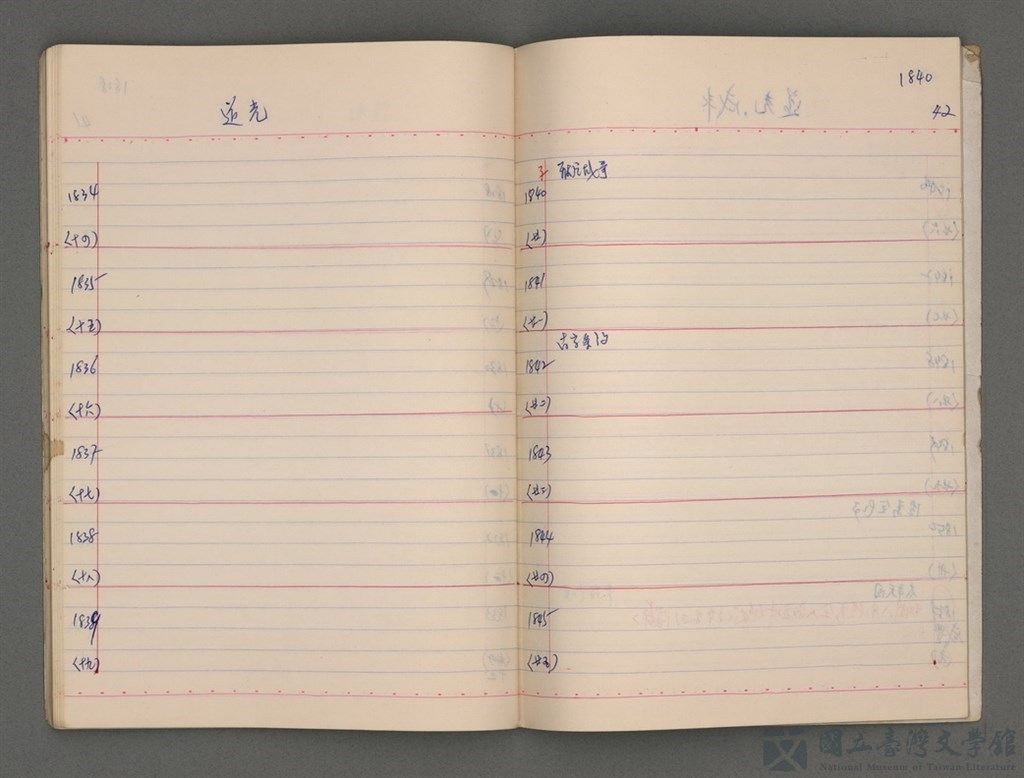 道光
1834
(十四)
1835
(十五)
1836
(十六)
1837
(十七)
1838
(十八)
1839
(十九)
1840
42
1840
(廿)
1841
(廿一)
1842
(廿二)
1843
(廿三)
1844
(廿四)
1845
(廿五)
國立臺灣文學館
National Museum of Taiwan Literature